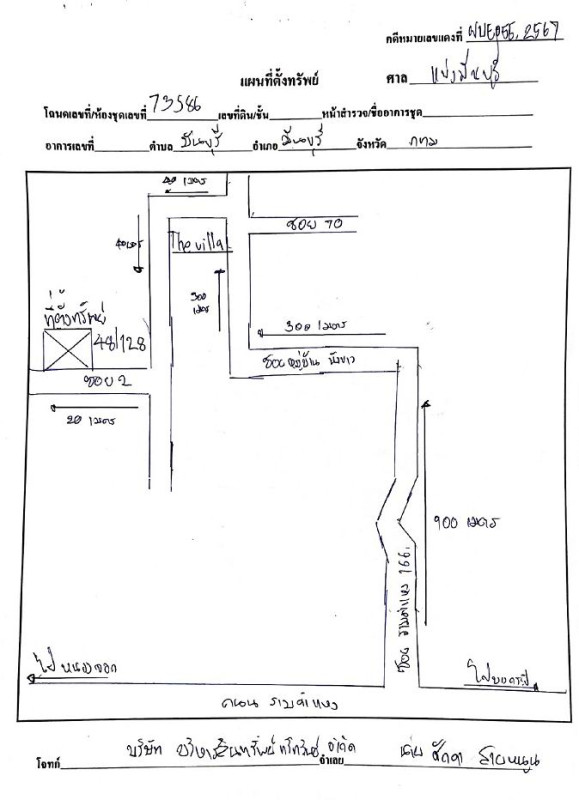 คดีหมายเลขแดงที่ ผบE956/2567
แผนที่ตั้งทรัพย์ ศาล แพ่งมีนบุรี
โฉนดเลขที่/ห้องชุดเลขที่ 73586 เลขที่ดิน/ชั้น หน้าสำรวจ/ชื่ออาคารชุด
อาคารเลขที่ ตำบล มีนบุรี อำเภอ มีนบุรี จังหวัด กทม
40 เมตร
ซอย 70
40 เมตร
The villa
300 เมตร
ที่ตั้งทรัพย์
48/128
300 เมตร
ซอยหมู่บ้าน
ซอย 2
20 เมตร
900 เมตร
ซอย รามคำแหง 166
ไป หนองจอก
ไปบางกะปิ
ถนน รามคำแหง
โจทก์ บริษัท บริหารสินทรัพย์ จำกัด จำเลย